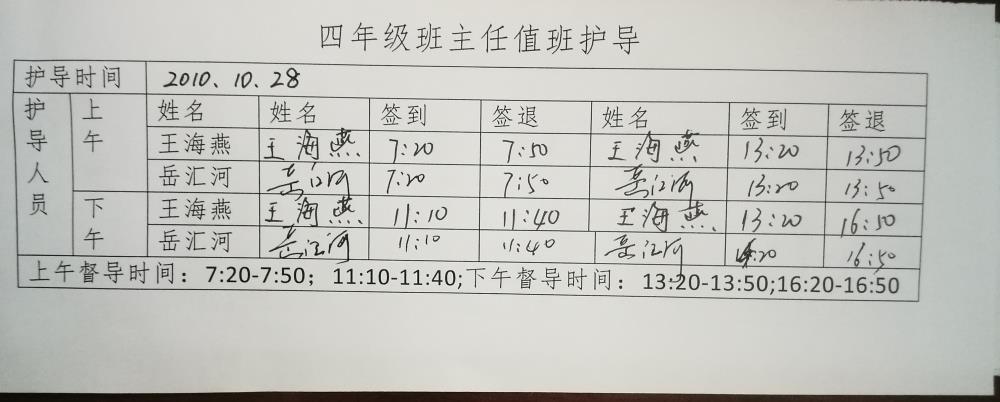 四年级班主任值班护导
护导时间 2010.10.28
护导人员 上午 姓名 姓名 签到 签退 姓名 签到 签退
王海燕 王海燕 7:20 7:50 王海燕 13:20 13:50
岳汇河 岳汇河 7:20 7:50 岳汇河 13:20 13:50
下午 王海燕 王海燕 11:10 11:40 王海燕 13:20 16:50
岳汇河 岳汇河 11:10 11:40 岳汇河 16:50
上午督导时间：7:20-7:50；11:10-11:40;下午督导时间：13:20-13:50;16:20-16:50